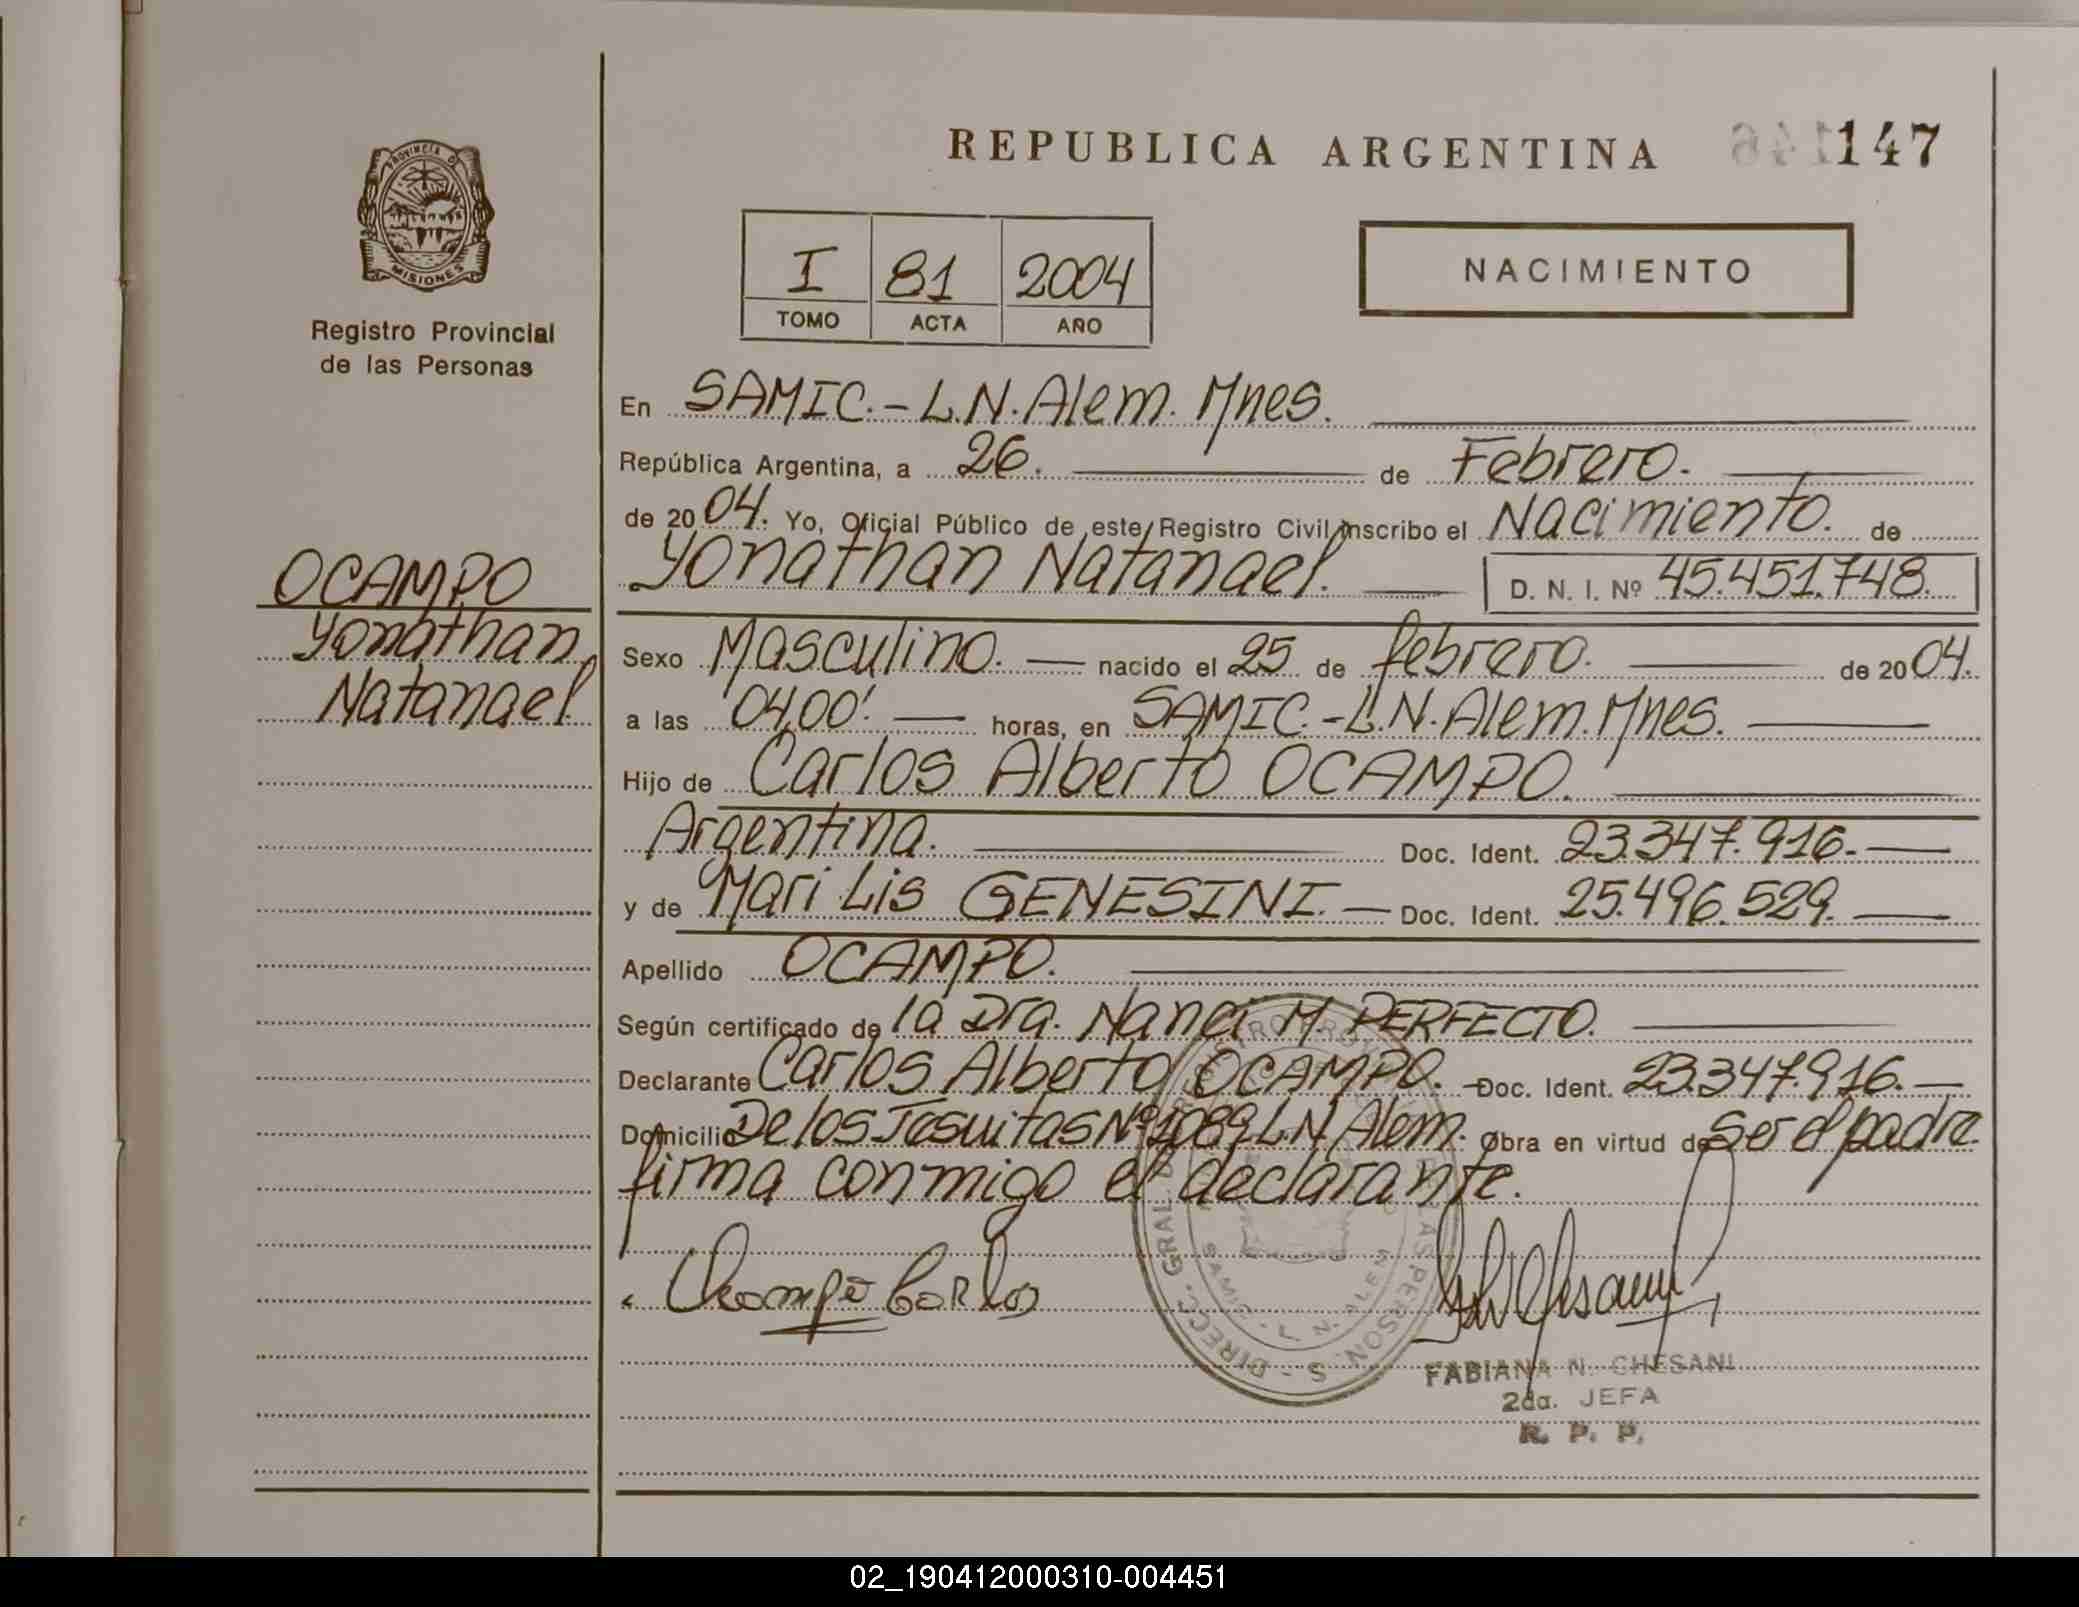 REPUBLICA ARGENTINA 147
PROVINCIA DE
MISIONES
Registro Provincial
de las Personas
NACIMIENTO
I 81 2004
TOMO ACTA AÑO
En SAMIC.-L.N.Alem. Mnes.
República Argentina, a 26. de Febrero.
de 2004. Yo, Oficial Público de este Registro Civil inscribo el Nacimiento. de
Yonathan Natanael. D. N. I. Nº 45.451.748.
OCAMPO
Yonathan
Natanael.
Sexo Masculino. nacido el 25 de febrero. de 2004.
a las 04,00'. horas, en SAMIC.-L.N.Alem.Mnes.
Hijo de Carlos Alberto OCAMPO.
Argentina. Doc. Ident. 23.347.916.
y de Mari Lis GENESINI. Doc. Ident. 25.496.529.
Apellido OCAMPO.
Según certificado de la Dra. Nanci M. PERFECTO.
Declarante Carlos Alberto OCAMPO. Doc. Ident. 23.347.916.
Domicilio De los Jesuitas Nº 1089 L.N Alem. Obra en virtud de Ser el padre
firma conmigo el declarante.
Ocampo Carlos
SAMIC - L. N. ALEM
FABIANA N. CHESANI
2da. JEFA
R. P. P.
02_190412000310-004451